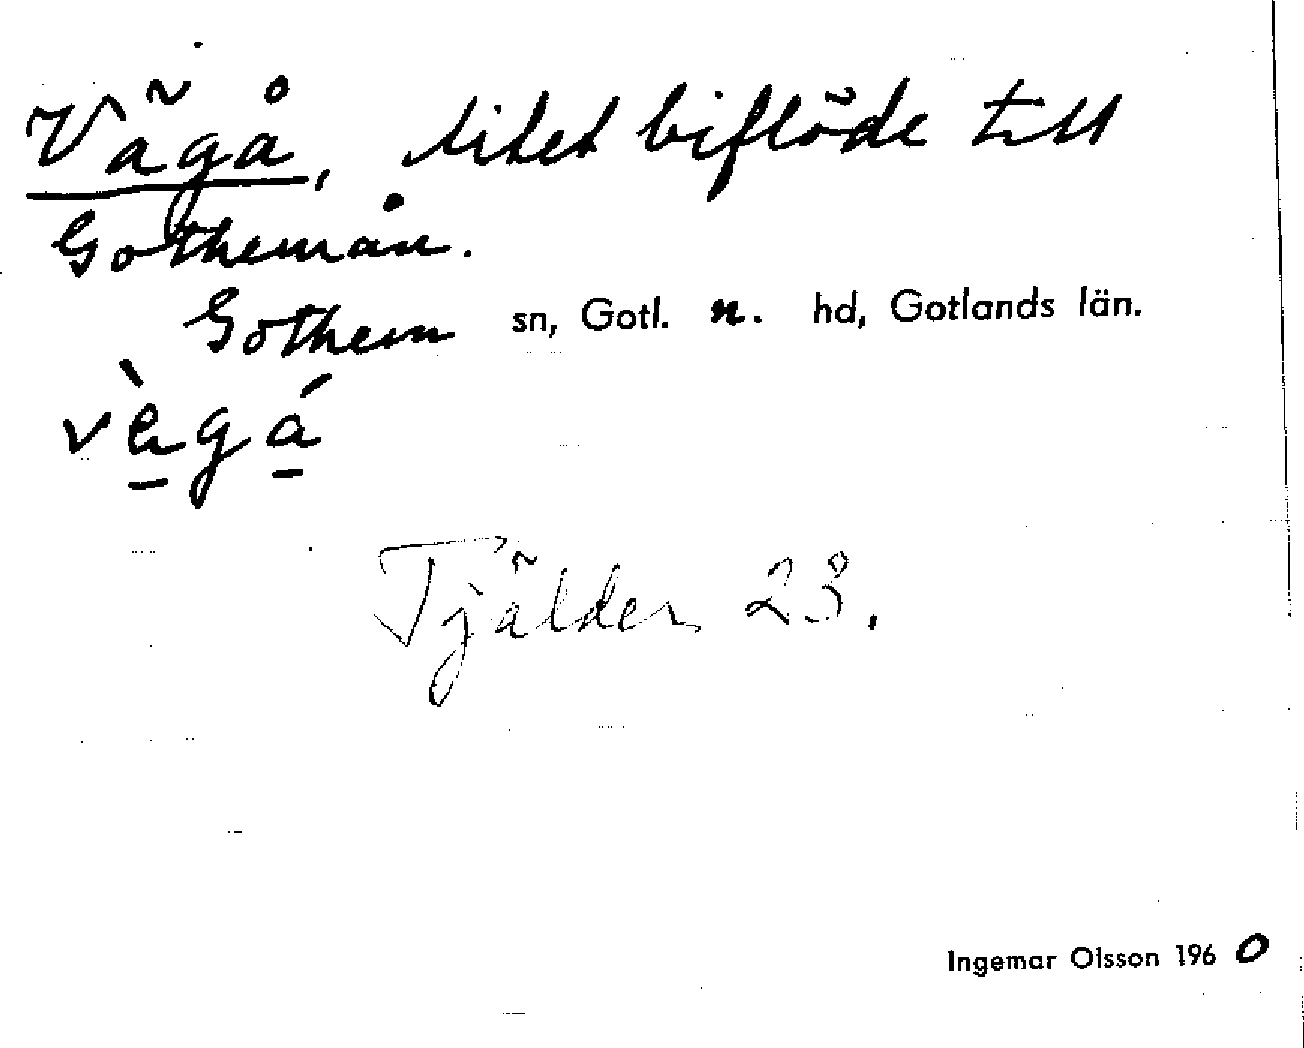 Vägå, litet biflöde till
Gothemån.
Gothem sn, Gotl. n. hd, Gotlands län.
vägá
Tjälder 23.
Ingemar Olsson 1960